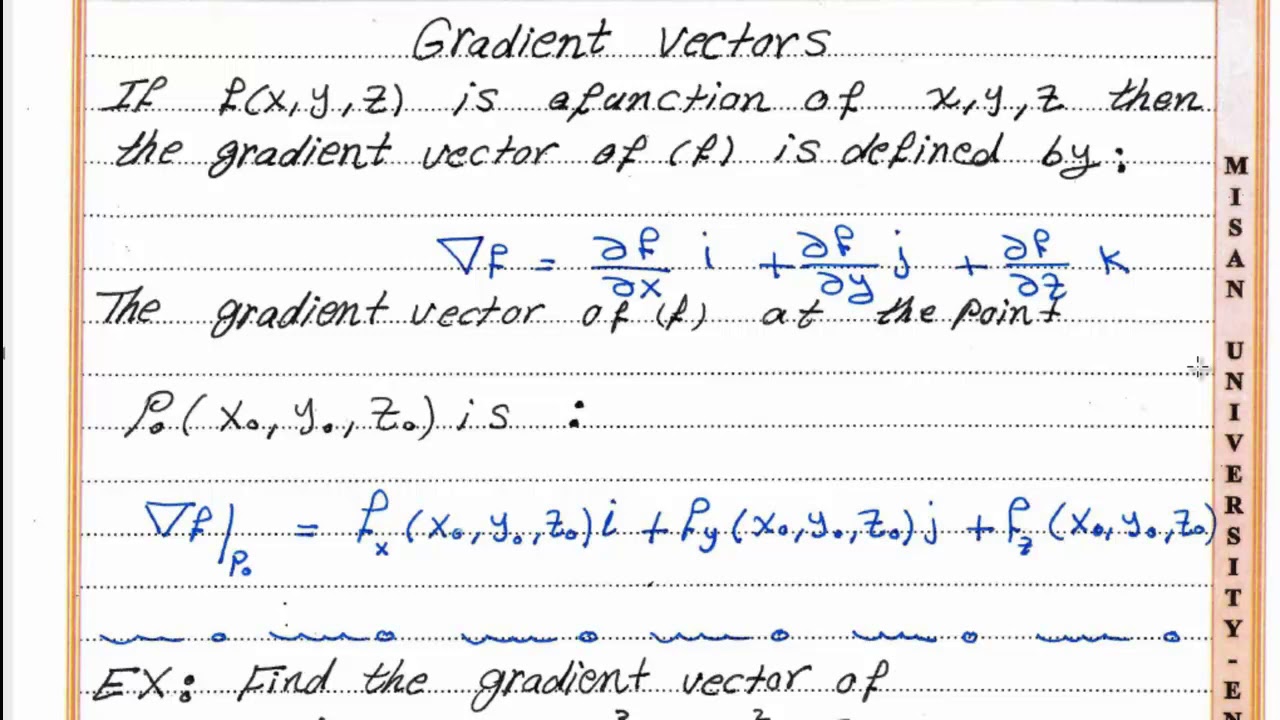 Gradient vectors
If f(x, y, z) is afunction of x, y, z then
the gradient vector of (f) is defined by:
∇f = ∂f/∂x i + ∂f/∂y j + ∂f/∂z k
The gradient vector of (f) at the point
P₀(x₀, y₀, z₀) is :
∇f|P₀ = fₓ(x₀, y₀, z₀)i + fy(x₀, y₀, z₀)j + fz(x₀, y₀, z₀)
EX: Find the gradient vector of
MISAN UNIVERSITY-EN